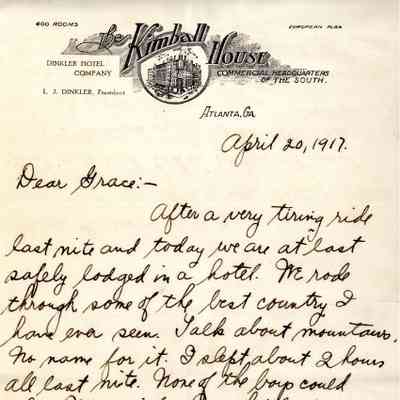 400 ROOMS
EUROPEAN PLAN
The Kimball House
DINKLER HOTEL
COMPANY
COMMERCIAL HEADQUARTERS
OF THE SOUTH.
L. J. DINKLER, President
ATLANTA, GA
April 20, 1917.
Dear Grace:-
After a very tiring ride
last nite and today we are at last
safely lodged in a hotel. We rode
through some of the best country I
have ever seen. Talk about mountains.
No name for it. I slept about 2 hours
all last nite. None of the boys could